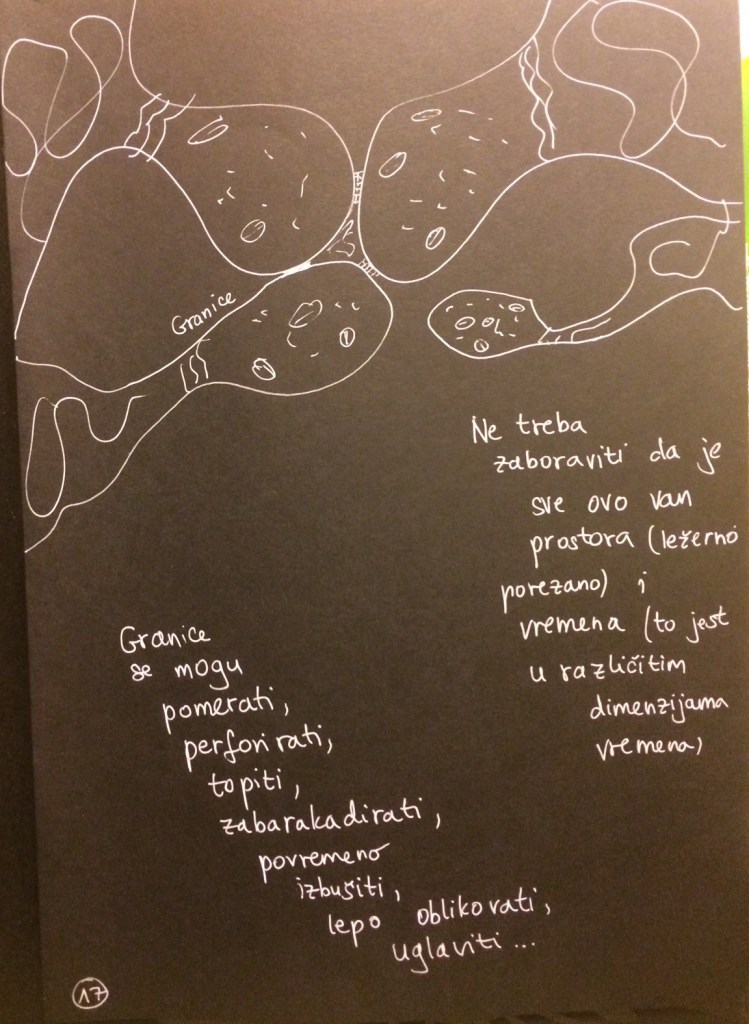 Granice
Ne treba
zaboraviti da je
sve ovo van
prostora (ležerno
porezano) i
vremena (to jest
u različitim
dimenzijama
vremena)
Granice
se mogu
pomerati,
perforirati,
topiti,
zabarakadirati,
povremeno
izbušiti,
lepo oblikovati,
uglaviti...
17